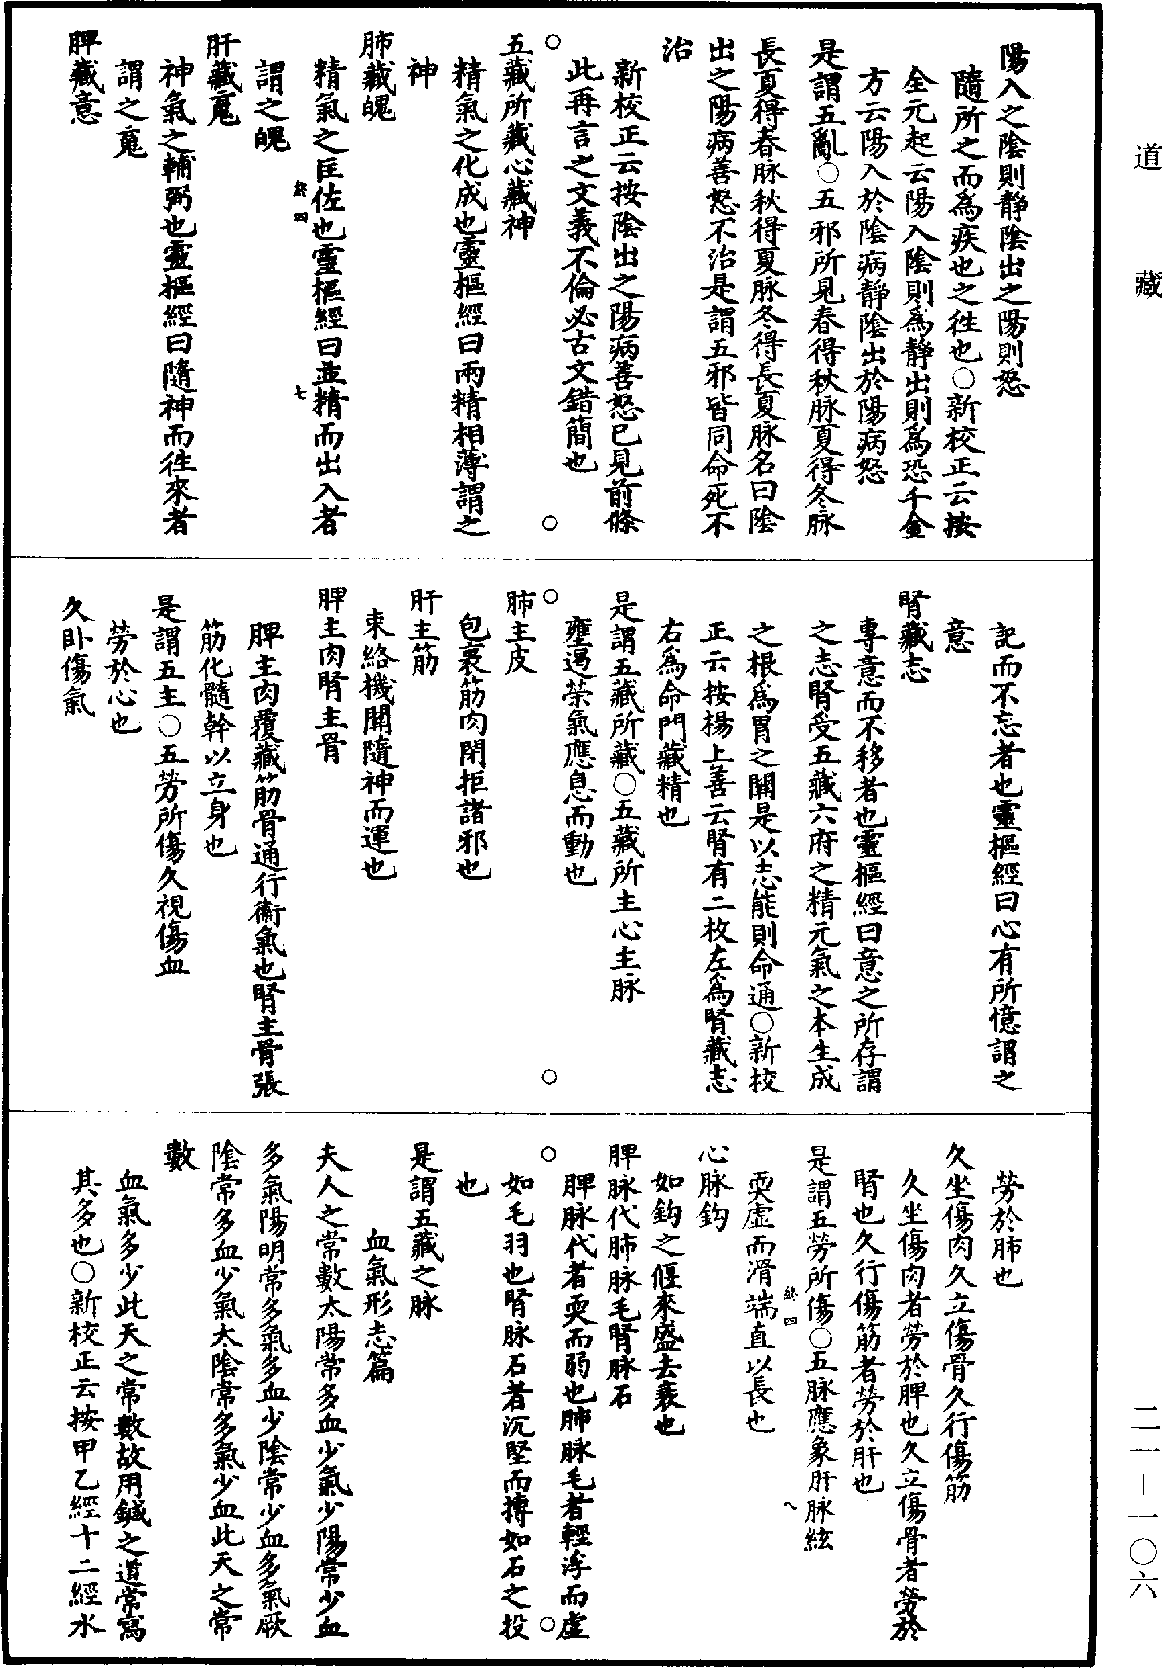 道藏
陽入之陰則靜陰出之陽則怒
隨所之而爲疾也之往也○新校正云按
全元起云陽入陰則爲靜出則爲恐千金
方云陽入於陰病靜陰出於陽病怒
是謂五亂○五邪所見春得秋脉夏得冬脉
長夏得春脉秋得夏脉冬得長夏脉名曰陰
出之陽病善怒不治是謂五邪皆同命死不
治
新校正云按陰出之陽病善怒已見前條
此再言之文義不倫必古文錯簡也
○ ○
五藏所藏心藏神
精氣之化成也靈樞經曰兩精相薄謂之
神
肺藏魄
精氣之匡佐也靈樞經曰並精而出入者
絲四 七
謂之魄
肝藏䰟
神氣之輔弼也靈樞經曰隨神而往來者
謂之䰟
脾藏意
記而不忘者也靈樞經曰心有所憶謂之
意
腎藏志
專意而不移者也靈樞經曰意之所存謂
之志腎受五藏六府之精元氣之本生成
之根爲胃之關是以志能則命通○新校
正云按楊上善云腎有二枚左爲腎藏志
右爲命門藏精也
是謂五藏所藏○五藏所主心主脉
壅遏榮氣應息而動也
○ ○
肺主皮
包裹筋肉閉拒諸邪也
肝主筋
束絡機關隨神而運也
脾主肉腎主骨
脾主肉覆藏筋骨通行衞氣也腎主骨張
筋化髓幹以立身也
是謂五主○五勞所傷久視傷血
勞於心也
久卧傷氣
勞於肺也
久坐傷肉久立傷骨久行傷筋
久坐傷肉者勞於脾也久立傷骨者勞於
腎也久行傷筋者勞於肝也
是謂五勞所傷○五脉應象肝脉絃
絲四 八
耎虛而滑端直以長也
心脉鈎
如鈎之偃來盛去衰也
脾脉代肺脉毛腎脉石
脾脉代者耎而弱也肺脉毛者輕浮而虛
○ ○
如毛羽也腎脉石者沉堅而搏如石之投
也
是謂五藏之脉
血氣形志篇
夫人之常數太陽常多血少氣少陽常少血
多氣陽明常多氣多血少陰常少血多氣厥
陰常多血少氣太陰常多氣少血此天之常
數
血氣多少此天之常數故用鍼之道常寫
其多也○新校正云按甲乙經十二經水
二一—一〇六